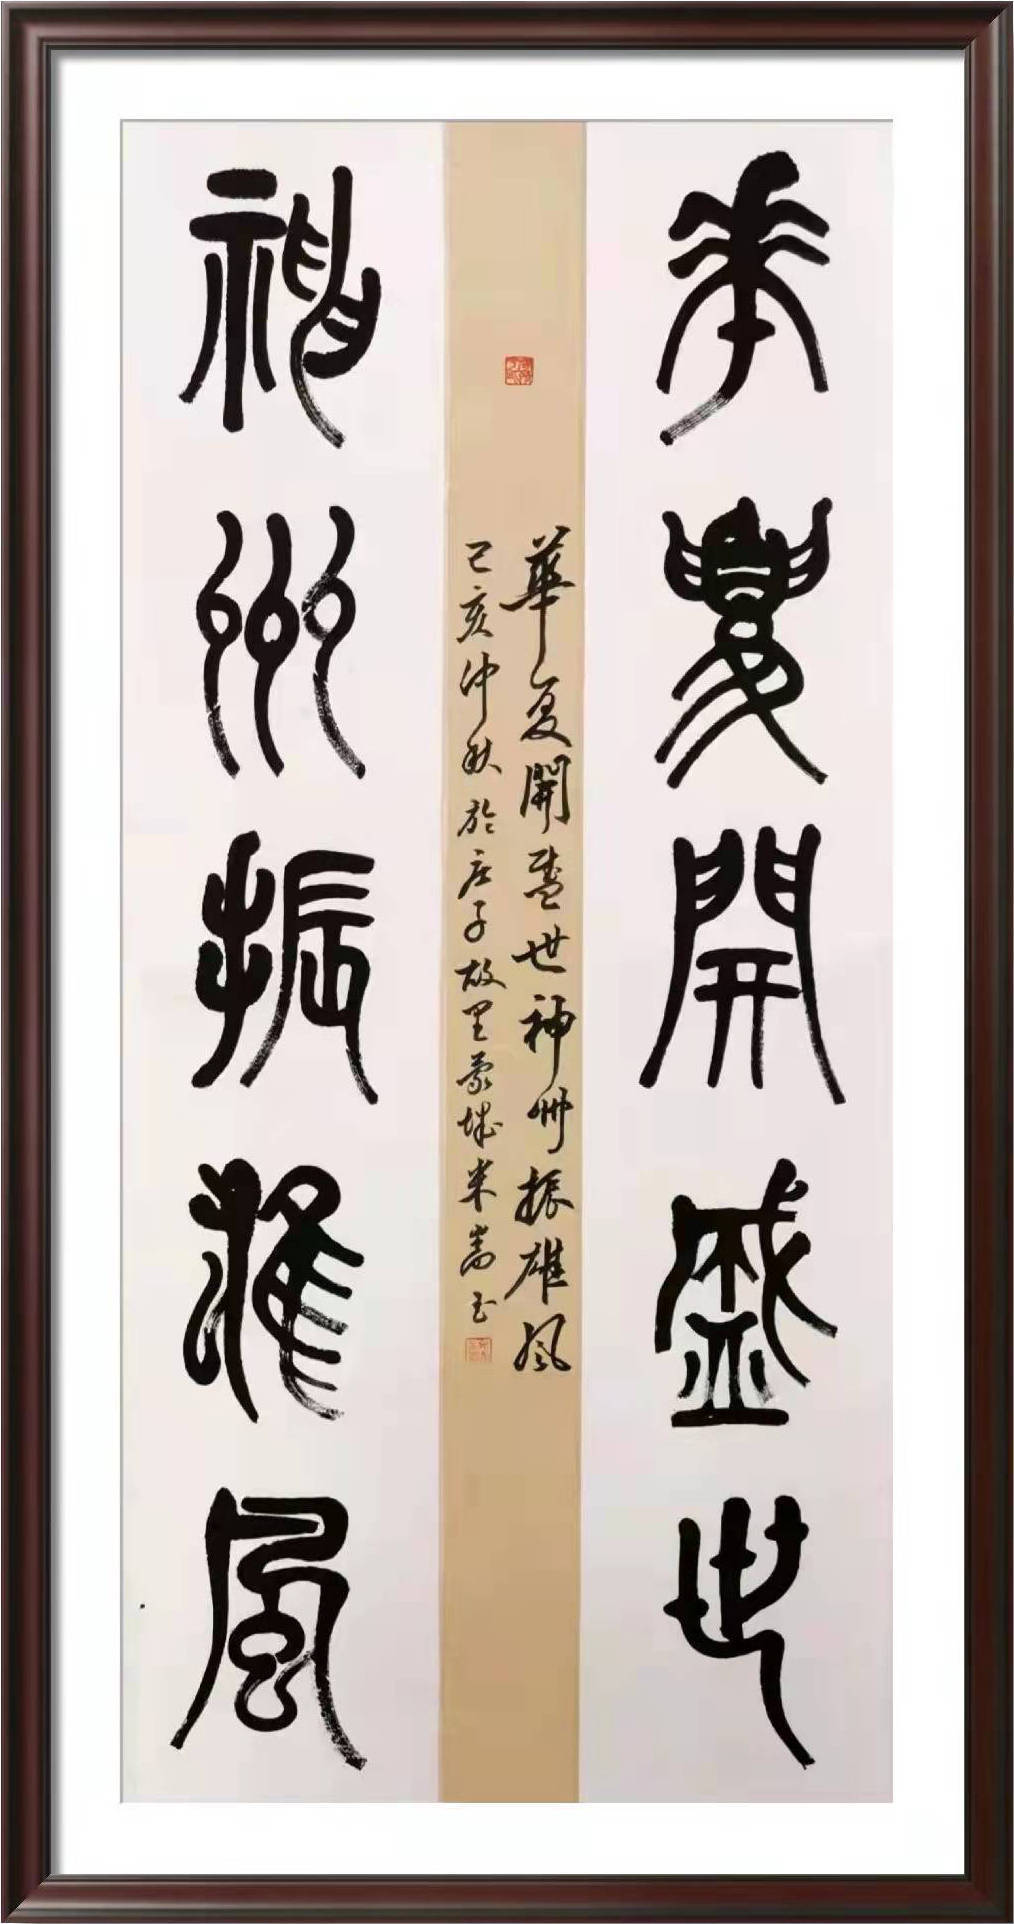 華夏開盛世
華夏開盛世神州振雄風
己亥仲秋於庄子故里蒙城米嵩
神州振雄風